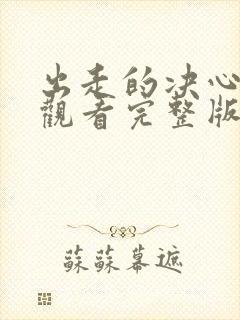 出走的决心
觀看完整版
蘇蘇幕遮